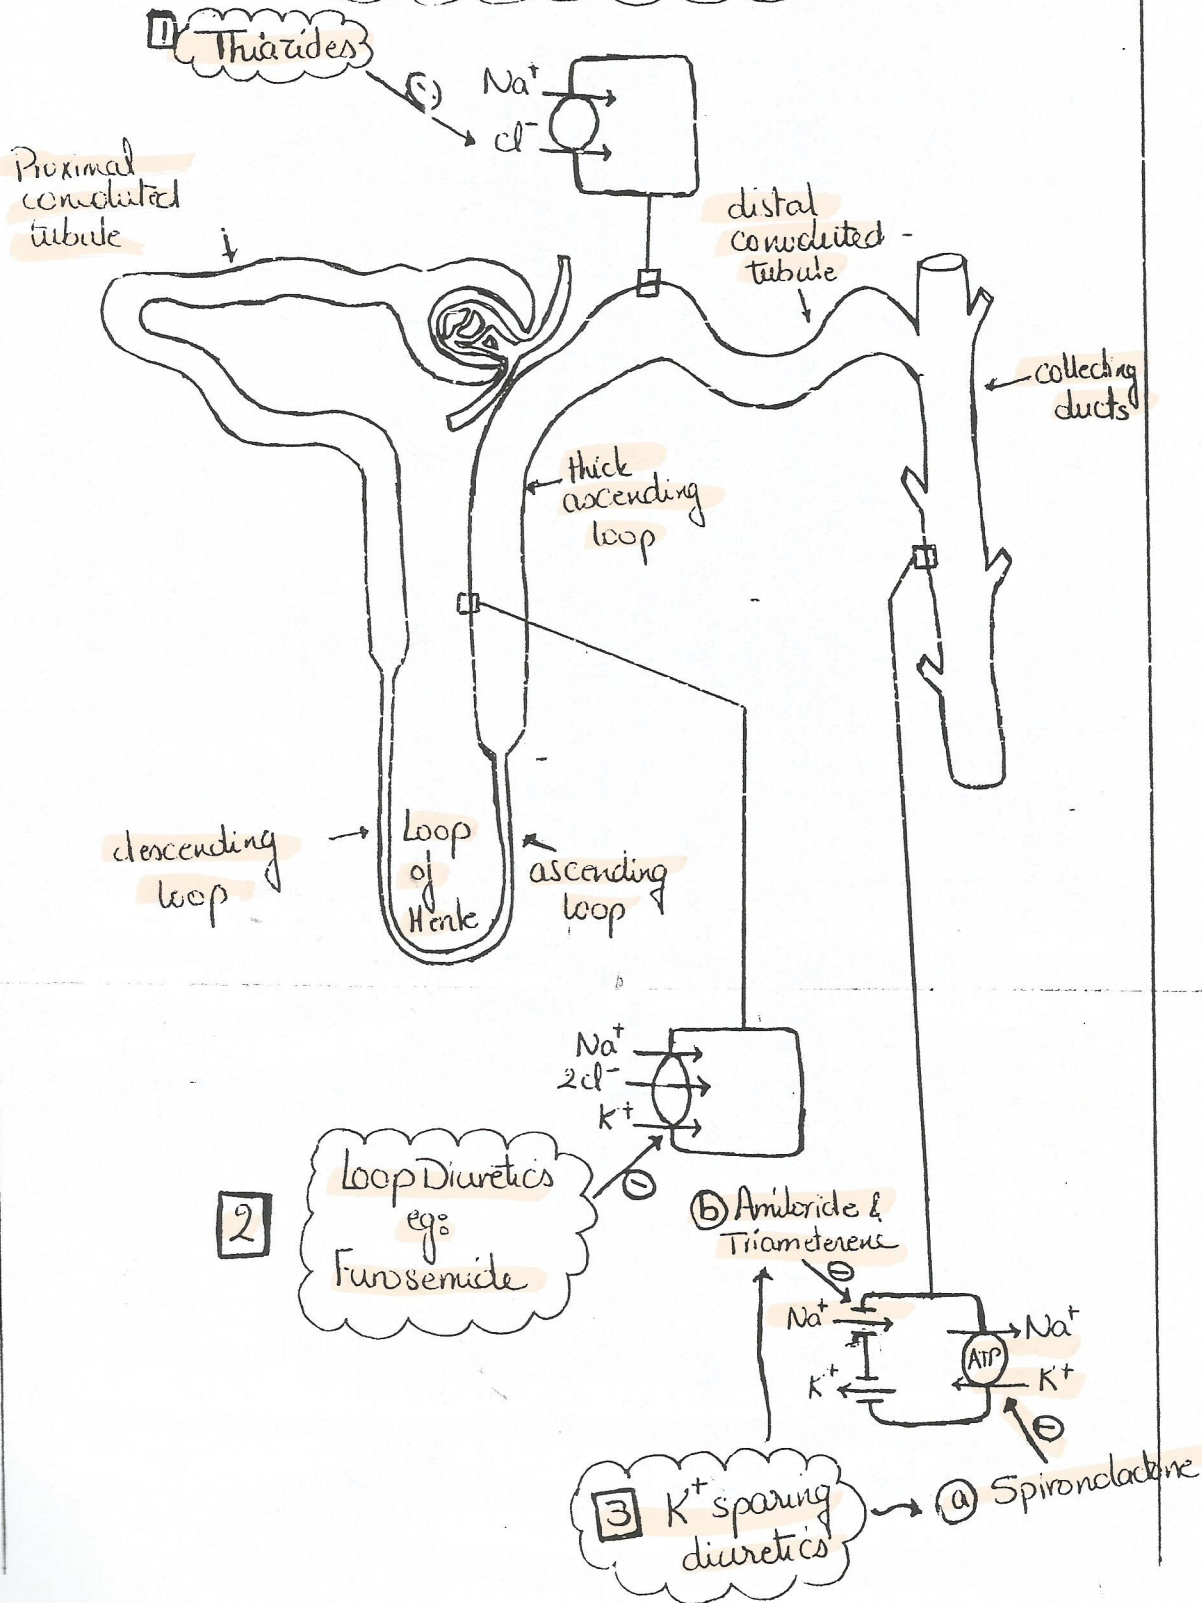 1 Thiazides
(-)
Na+
Cl-
Proximal
convoluted
tubule
distal
convoluted
tubule
collecting
ducts
thick
ascending
loop
descending
loop
Loop
of
Henle
ascending
loop
Na+
2Cl-
K+
2
Loop Diuretics
eg:
Furosemide
(-)
(b) Amiloride &
Triameterene
(-)
Na+
K+
ATP
Na+
K+
(-)
3 K+ sparing
diuretics
(a) Spironolactone